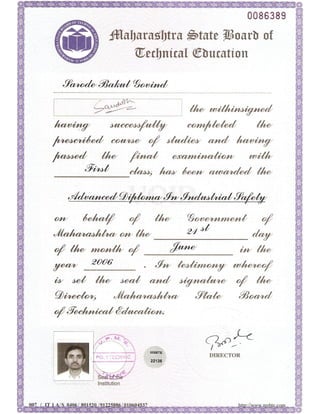 0086389
Maharashtra State Board of
Technical Education
Sarode Bakul Govind
the withinsigned
having successfully completed the
prescribed course of studies and having
passed the final examination with
First class, has been awarded the
Advanced Diploma In Industrial Safety
on behalf of the Government of
Maharashtra on the 21st day
of the month of June in the
year 2006 . In testimony whereof
is set the seal and signature of the
Director, Maharashtra State Board
of Technical Education.
DIRECTOR
Seal of the
Institution
22136